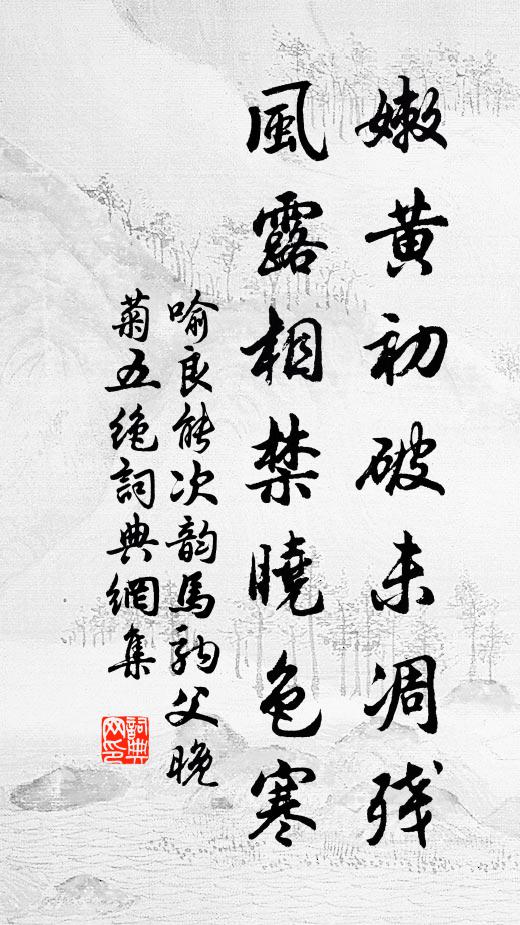 嫩黄初破未凋殘
風露相禁曉色寒
喻良能次韵馬駒父晚
菊五绝詞典網集
詞典网印